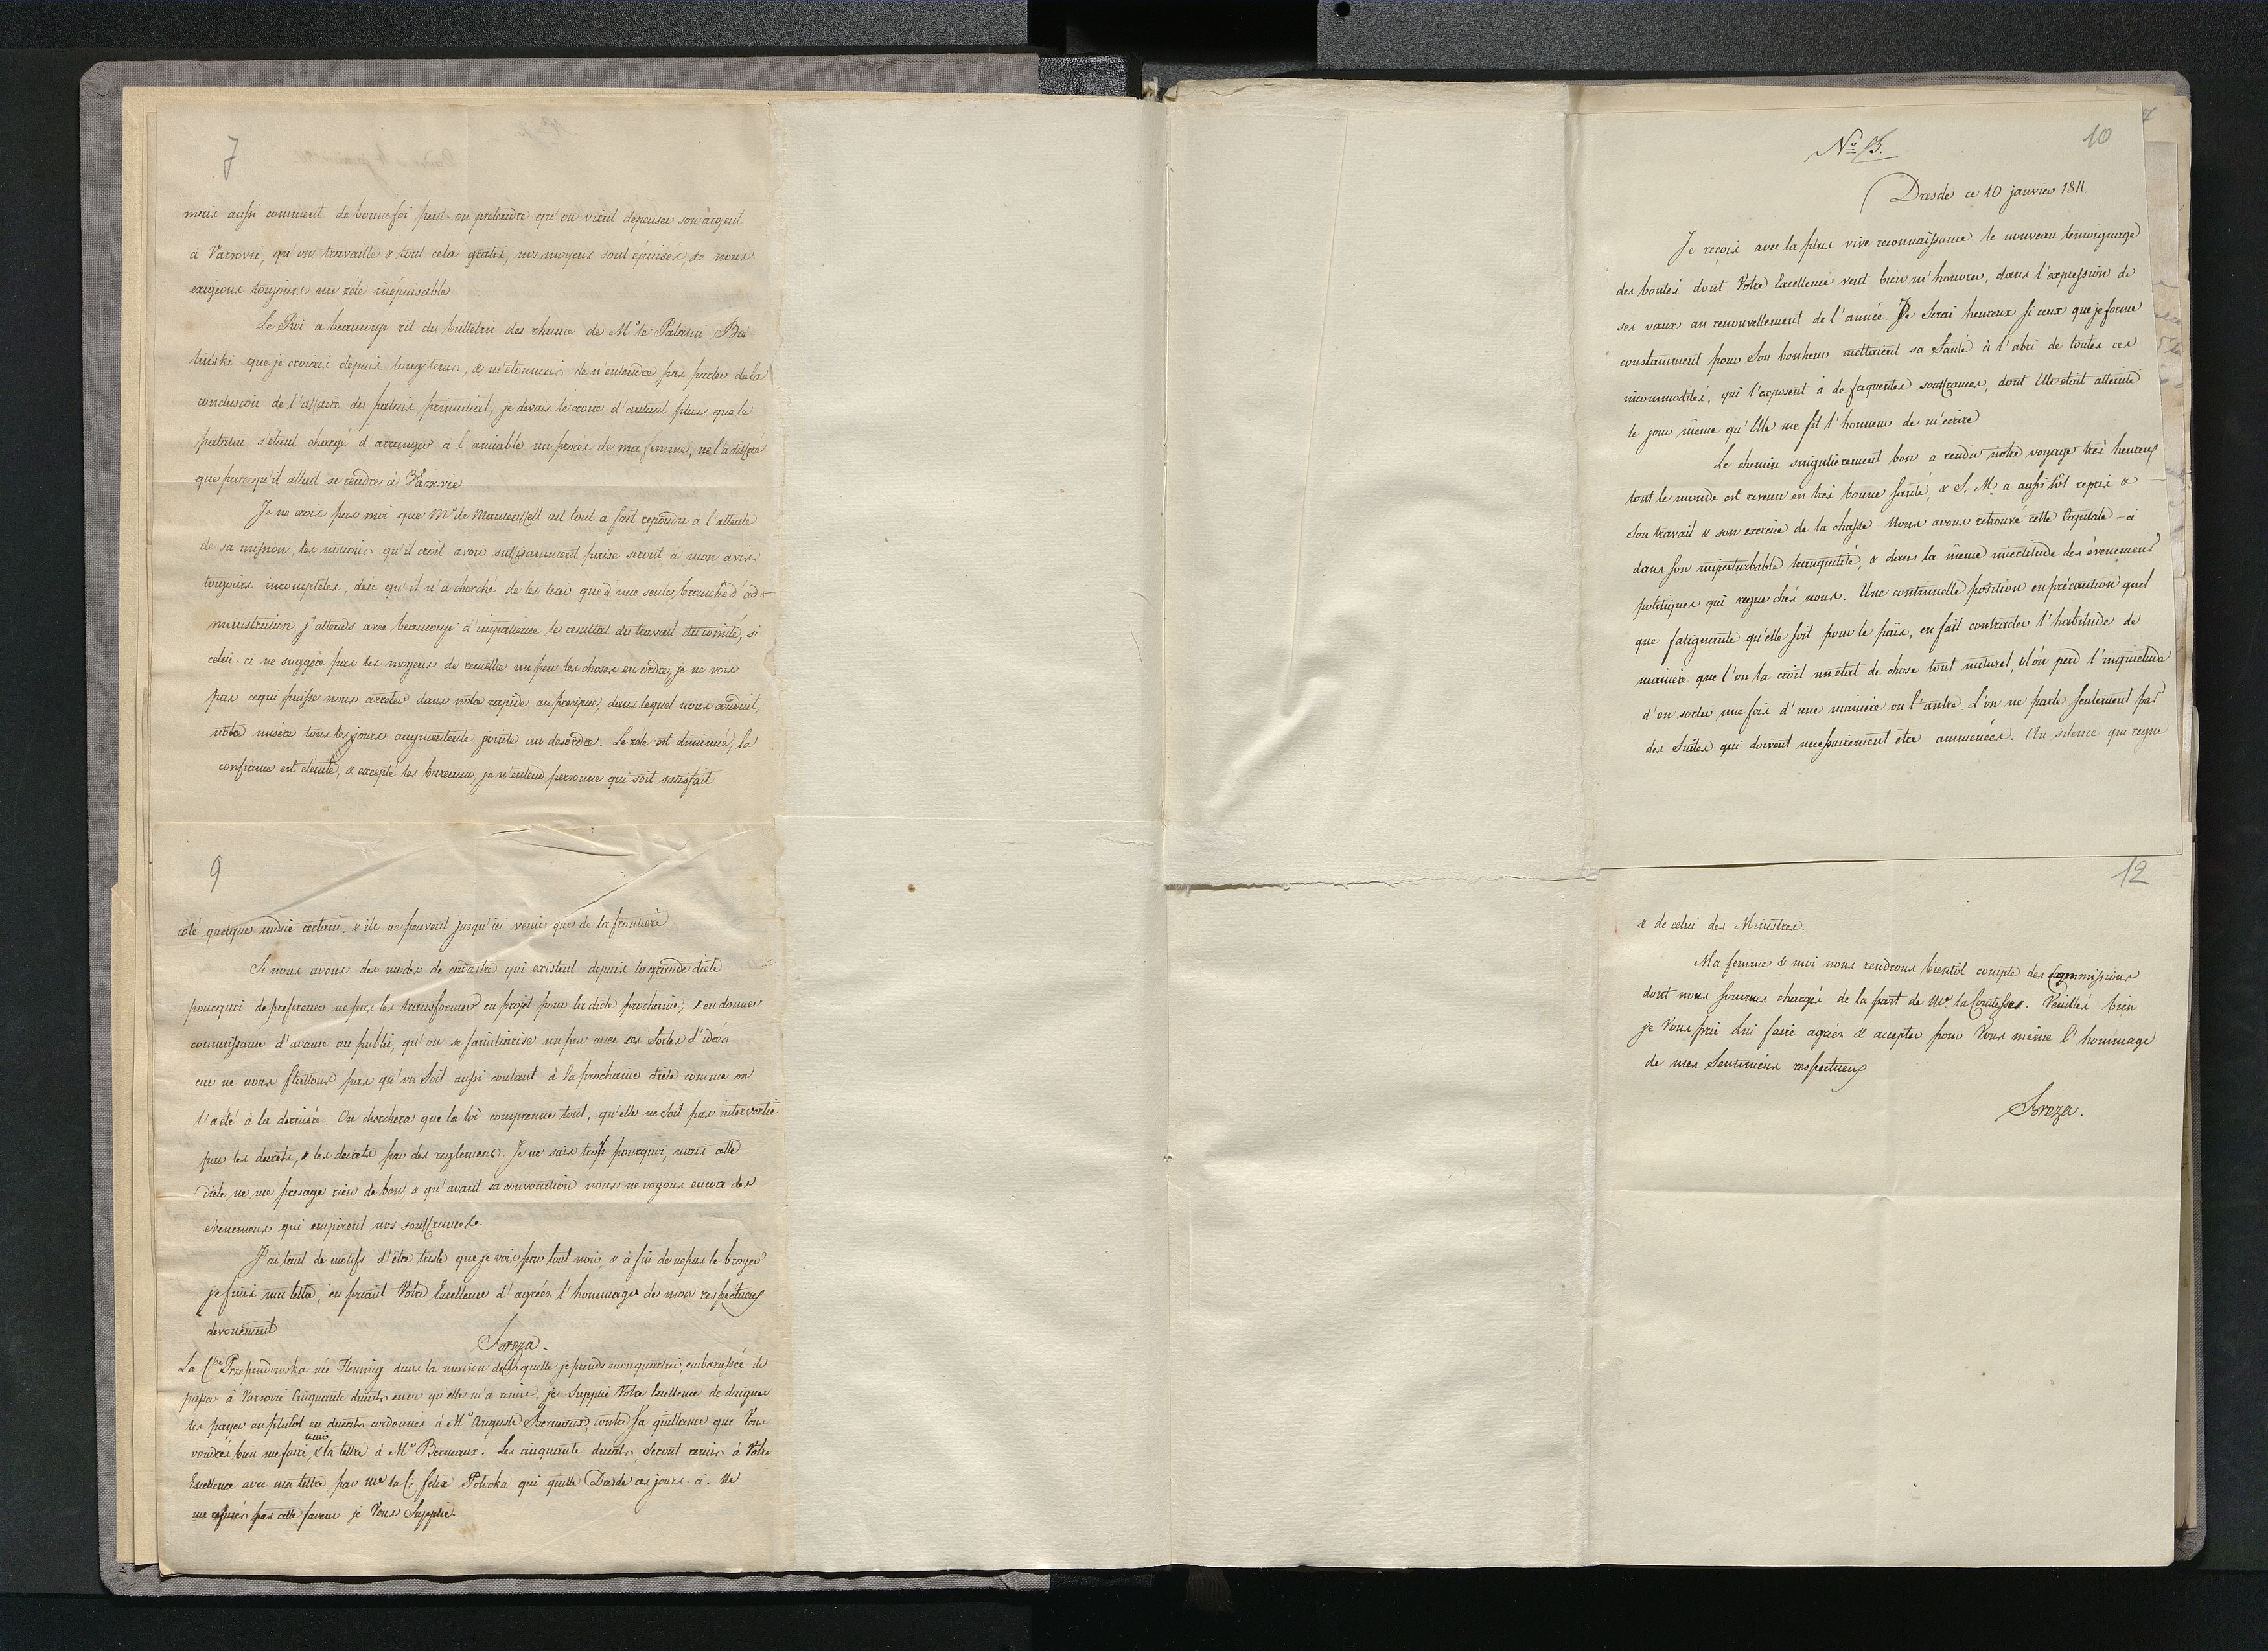 7
mais aussi comment de bonne foi peut-on pretendre qu'on vient depenser son argent
à Varsovie, qu'on travaille & tout cela gratis, nos moyens sont épuisés, & nous
exigeons toujours un zéle inépuisable
Le Roi a beaucoup rit du bulletin des rhume de Mr le Palatin Bie
linski que je croiais depuis longtems, & m'etonnais de n'entendre pas parler de la
conclusion de l'affaire du palais, je devais le croire d'autant plus que le
palatin s'étant chargé d'arranger à l'amiable un procès de ma femme, ne l'a differé
que parcequ'il allait se rendre à Varsovie
Je ne crois pas moi que Mr de Manteuffell ait tout à fait repondu à l'attente
de sa mission, les notions qu'il croit avoir suffisamment puisé seront a mon avis
toujours incompletes, des qu'il n'a cherché de les tirer que d'une seule branche d'ad-
ministration, j'attends avec beaucoup d'impatience le resultat du travail du comité, si
celui-ci ne suggère pas les moyens de remettre un peu les choses en ordre, je ne vois
pas ce qui puisse nous arreter dans notre rapide au precipice, dans lequel nous conduit,
notre misère tous les jours augmentente jointe au desordre. Le zéle est diminué, la
confiance est éteinte, & excepté les bureaux, je n'entend personne qui soit satisfait
9
côté quelque indice certain. & ils ne peuvent jusqu'ici venir que de la frontière
Si nous avons des modes de cadastre qui existent depuis la grande diete
pourquoi de preference ne pas les transformer en projet pour la diete prochaine, & en donner
connaissance d'avance au public, qu'on se familiarise un peu avec ces sortes d'idées
car ne nous flattons pas qu'on soit aussi coulant à la prochaine diete comme on
l'a été à la derniere. On cherchera que la loi comprenne tout, qu'elle ne soit pas intervertie
par les decrets, & les decrets par des reglemens. Je ne sais trop pourquoi, mais cette
diete ne me presage rien de bon, & qu'avant sa convocation nous ne voyons encore des
evenemens qui empirent nos souffrances.
J'ai tant de motifs d'être triste que je vois par tout noir, & à fin de ne pas le broyer
je finis ma lettre, en priant Votre Excellence d'agréér l'hommage de mon respectueux
devouement
Breza.
La Csse Przependowska née Flemmig dans la maison de laquelle je prends mon quartier, embarassée de
passer à Varsovie Cinquante ducats en or qu'elle m'a remis, je supplie Votre Excellence de daigner
les payer au plutot en ducats cordonnés à Mr Auguste Bernaux, contre sa quittance que Vous
voudrés bien me faire tenir & la lettre à Mr Bernaux. Les cinquante ducats seront remis à Votre
Excellence avec ma lettre par Me la C: felix Potocka qui quitte Dresde ces jours-ci. Ne
me refusés pas cette faveur je Vous supplie.
10
No 3.
Dresde ce 10 janvier 1811.
Je reçois avec la plus vive reconnaissance le nouveau temoignage
des bontés dont Votre Excellence veut bien m'honorer, dans l'expression de
ses vœux au renouvellement de l'année. Je Serai heureux si ceux que je forme
constamment pour Son bonheur mettaient sa Santé à l'abri de toutes ces
incommodités, qui l'exposent à de frequentes souffrances, dont Elle était atteinte
le jour même qu'Elle me fit l'honneur de m'écrire
Le chemin singulièrement bon a rendu notre voyage très heureux
tout le monde est revenu en très bonne santé, & S. M. a aussitôt repris &
Son travail & son exercice de la chasse Nous avons retrouvé cette Capitale-ci
dans son imperturbable tranquilité, & dans la même incertitude des évenemens
politiques qui regne chés nous. Une continuelle position en précaution quel
que fatiguante qu'elle soit pour le païs, en fait contracter l'habitude de
manière que l'on la croit un état de chose tout naturel, & l'on perd l'inquietude
d'en sortir une fois d'une manière ou l'autre. L'on ne parle seulement pas
des Suites qui doivent necessairement etre ammenées. Au silence qui regne
12
& de celui des Ministres.
Ma femme & moi nous rendrons bientôt compte des Commissions
dont nous sommes chargés de la part de Me la Comtesse. Veuillés bien
je Vous prie Lui faire agréér & accepter pour Vous même l'hommage
de mes Sentimens respectueux
Breza.